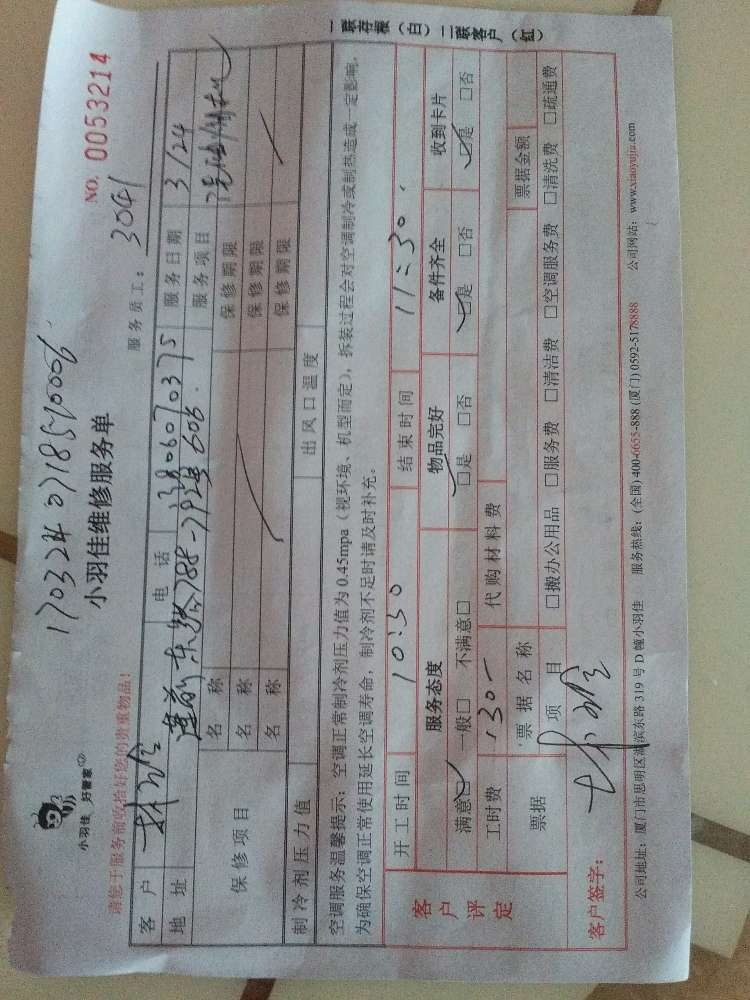 17032407185710006
小羽佳 好管家
小羽佳维修服务单
NO. 0053214
请您于服务前收拾好您的贵重物品！
服务员工：3041
客户 电话 服务日期 3/24
地址 莲前东路788-7 606. 服务项目
保修项目 名称 保修期限
名称 保修期限
名称 保修期限
制冷剂压力值 出风口温度
空调服务温馨提示：空调正常制冷剂压力值为 0.45mpa（视环境、机型而定），拆装过程会对空调制冷或制热造成一定影响，
为确保空调正常使用延长空调寿命，制冷剂不足时请及时补充。
开工时间 10:30 结束时间 11:30.
客户评定 服务态度 物品完好 备件齐全 收到卡片
满意□ 一般□ 不满意□ □是 □否 □是 □否 □是 □否
工时费 130- 代购材料费
票据 票据名称 票据金额
项目 □搬办公用品 □服务费 □清洁费 □空调服务费 □清洗费 □疏通费
客户签字：
公司地址：厦门市思明区湖滨东路 319 号 D 幢小羽佳 服务热线：(全国) 400-6655-888 (厦门) 0592-5178888 公司网站：www.xiaoyujia.com
一联存根（白）二联客户（红）